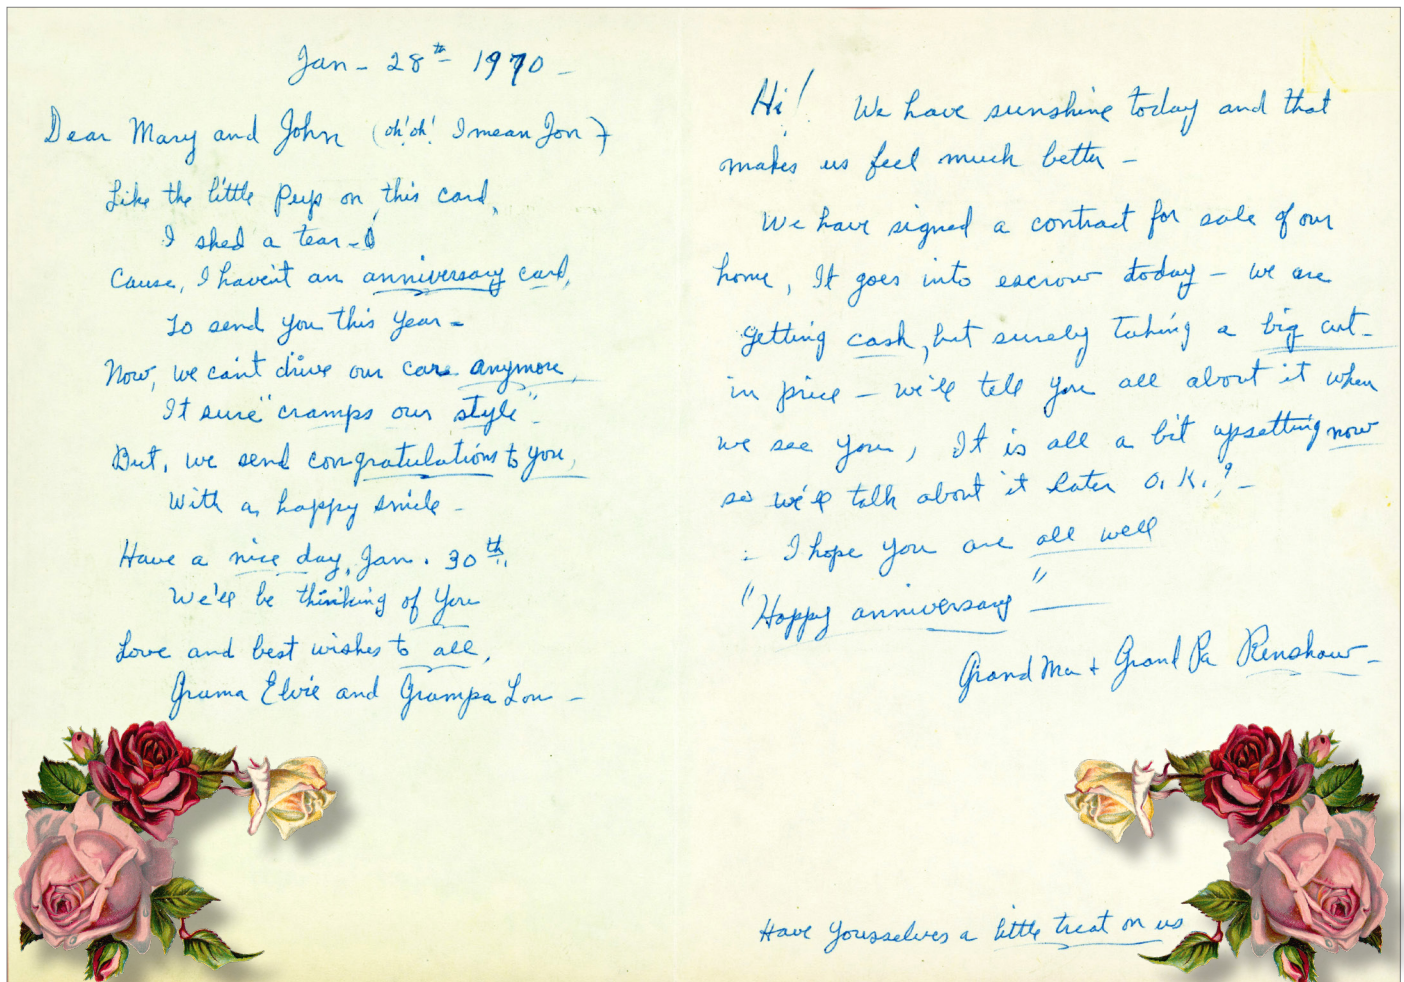 Jan - 28th 1970 -
Dear Mary and John (oh! oh! I mean Jon)
Like the little pups on this card,
I shed a tear -
Cause, I haven't an anniversary card,
To send you this year -
Now, we can't drive our car anymore,
It sure "cramps our style" -
But, we send congratulations to you,
With a happy smile -
Have a nice day, Jan. 30th.
We'll be thinking of you
Love and best wishes to all,
Grama Elvie and Grampa Lou -
Hi! We have sunshine today and that
makes us feel much better -
We have signed a contract for sale of our
home, It goes into escrow today - we are
getting cash, but surely taking a big cut -
in price - we'll tell you all about it when
we see you, It is all a bit upsetting now
so we'll talk about it later O.K.? -
- I hope you are all well
"Happy anniversary" -
Grand Ma + Grand Pa Renshaw -
Have yoursselves a little treat on us